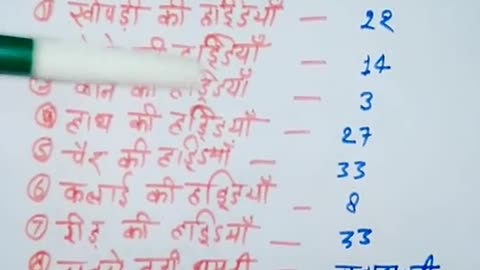 ① खोपड़ी की हड्डियाँ — 22
की हड्डियाँ — 14
③ कान की हड्डियाँ — 3
④ हाथ की हड्डियाँ — 27
⑤ पैर की हड्डियाँ — 33
⑥ कलाई की हड्डियाँ — 8
⑦ रीड़ की हड्डियाँ — 33
⑧